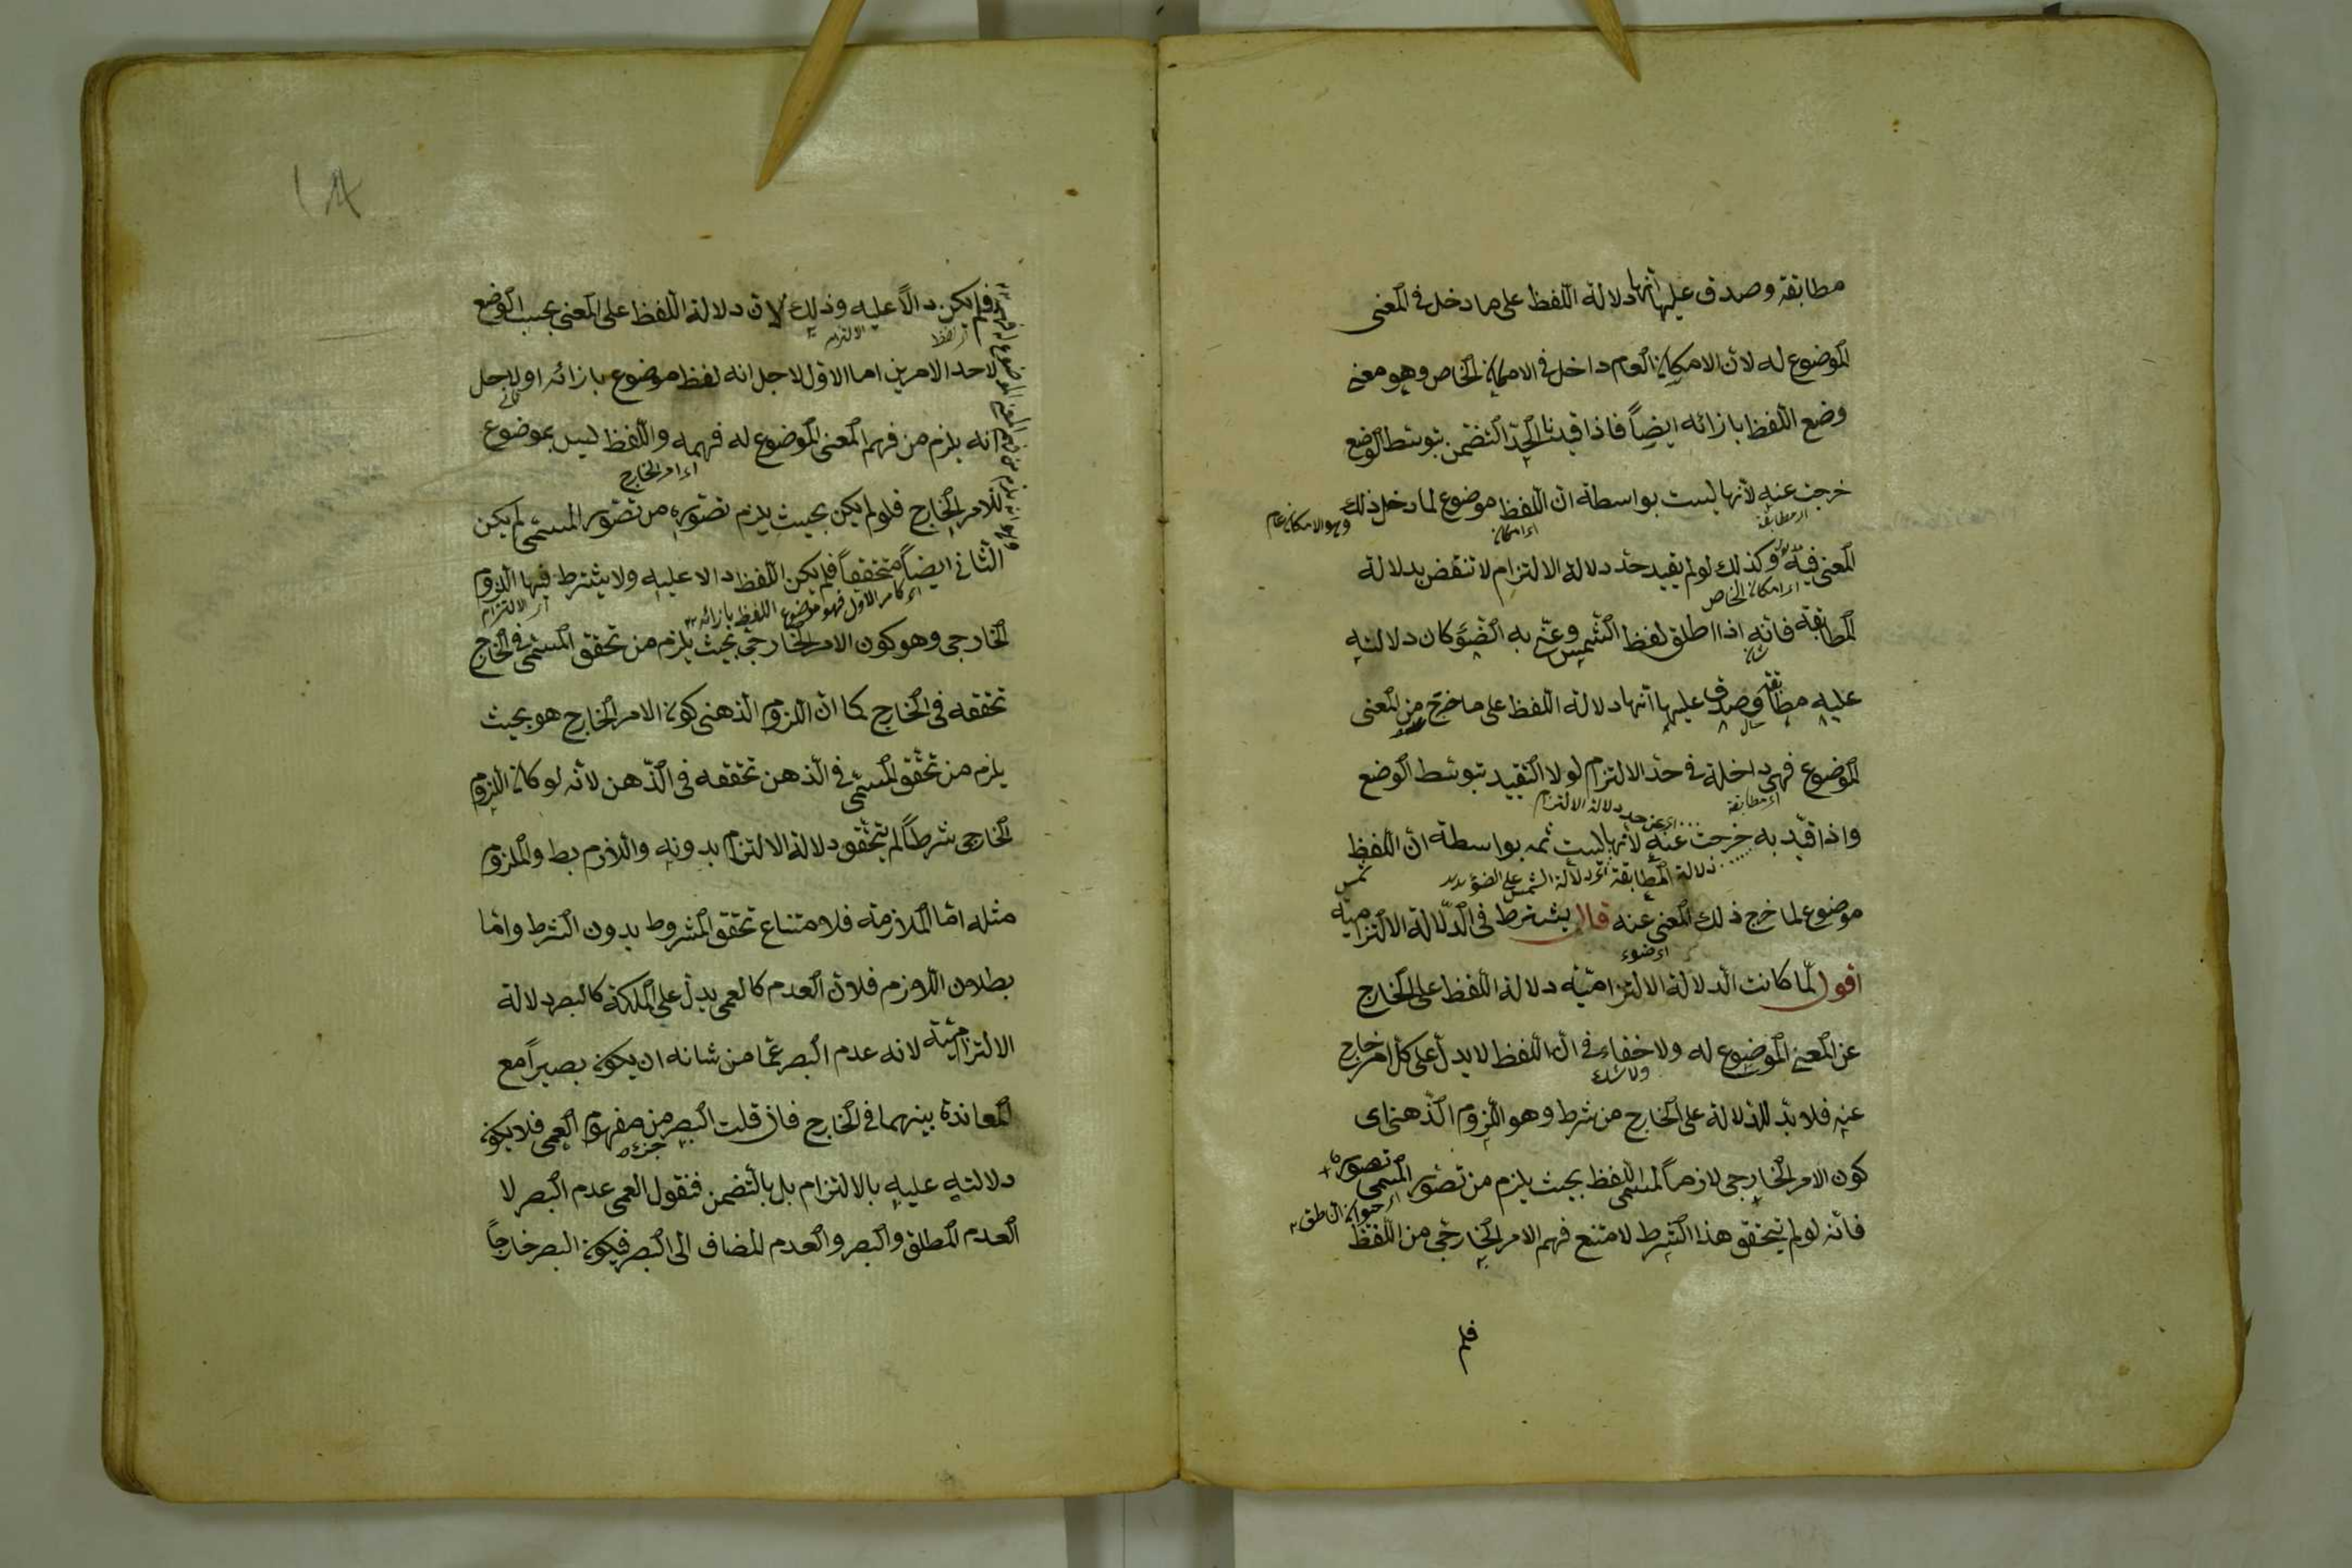 مطابقة وصدق عليها انها دلالة اللفظ على ما دخل فى المعنى
الموضوع له لان الامكان العام داخل فى الامكان الخاص وهو معنى
وضع اللفظ بازائه ايضاً فاذا قيدنا الحدّ التضمن بتوسّط الوضع
خرجت عنه لانها ليست بواسطة انّ اللفظ موضوع لما دخل ذلك
اى مطابقة
اى امكان
وهو الامكان عام
المعنى فيه وكذلك لو لم يقيد حدّ دلالة الالتزام لانتقض بدلالة
اى امكان الخاص
المطابقة فانه اذا اطلق لفظ الشمس وعنى به الضوء كان دلالته
عليه مطابقة وصدق عليها انها دلالة اللفظ على ما خرج من المعنى
الموضوع فهى داخلة فى حدّ الالتزام لولا التقييد بتوسّط الوضع
اى مطابقة
اى عن حد دلالة الالتزام
واذا قيّد به خرجت عنه لانها ليست ثمه بواسطة انّ اللفظ
دلالة المطابقة اى دلالة الشمس على الضوء
شمس
موضوع لما خرج ذلك المعنى عنه قال يشترط فى الدّلالة الالتزامية
اى ضوء
اقول لمّا كانت الدلالة الالتزاميّة دلالة اللفظ على الخارج
عن المعنى الموضوع له ولا خفاء فى انّ اللفظ لا يدلّ على كل امر خارج
ولا شك
عنه فلا بدّ للدلالة على الخارج من شرط وهو اللزوم الذّهنى اى
كون الامر الخارجى لازماً لمسمى اللفظ بحيث يلزم من تصوّر المسمى تصوره
اى حيوان الناطق
فانه لو لم يتحقق هذا الشرط لامتنع فهم الامر الخارجى من اللفظ
فلم
فلم يكن دالاً عليه وذلك لانّ دلالة اللفظ على المعنى بحسب الوضع
اى لفظ
الالتزام
لاحد الامرين اما الاوّل لاجل انه لفظ موضوع بازائه او لاجل
ثانى
انه يلزم من فهم المعنى الموضوع له فهمه واللفظ ليس بموضوع
اى امر الخارج
للامر الخارج فلو لم يكن بحيث يلزم تصوّره من تصوّر المسمى لم يكن
الثانى ايضاً متحققاً فلم يكن اللفظ دالا عليه ولا يشترط فيها اللزوم
اى كامر الاول فهو موضوع اللفظ بازائه
اى الالتزام
الخارجى وهو كون الامر الخارجى بحيث يلزم من تحقق المسمى فى الخارج
تحققه فى الخارج كما انّ اللزوم الذهنى كون الامر الخارج هو بحيث
يلزم من تحقّق المسمّى فى الذهن تحققه فى الذّهن لانه لو كان اللزوم
الخارجى شرطاً لم يتحقّق دلالة الالتزام بدونه واللازم بط والملزوم
مثله امّا الملازمة فلامتناع تحقق المشروط بدون الشرط وامّا
بطلان اللازم فلانّ العدم كالعمى يدلّ على الملكة كالبصر دلالة
الالتزاميّة لانه عدم البصر عمّا من شانه ان يكون بصيراً مع
المعاندة بينهما فى الخارج فان قلت البصر من مفهوم العمى فلا يكون
جزء
دلالته عليه بالالتزام بل بالتضمن فنقول العمى عدم البصر لا
العدم المطلق والبصر والعدم المضاف الى البصر فيكون البصر خارجاً